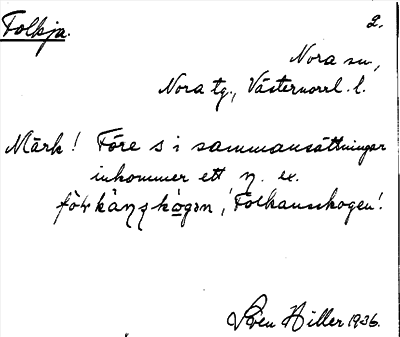 Folkja.
2.
Nora sn,
Nora tg., Västernorrl. l.
Märk! Före s i sammansättningar
inkommer ett ꞃ. ex.
'Folkansskogen'.
Sven Hiller 1936.